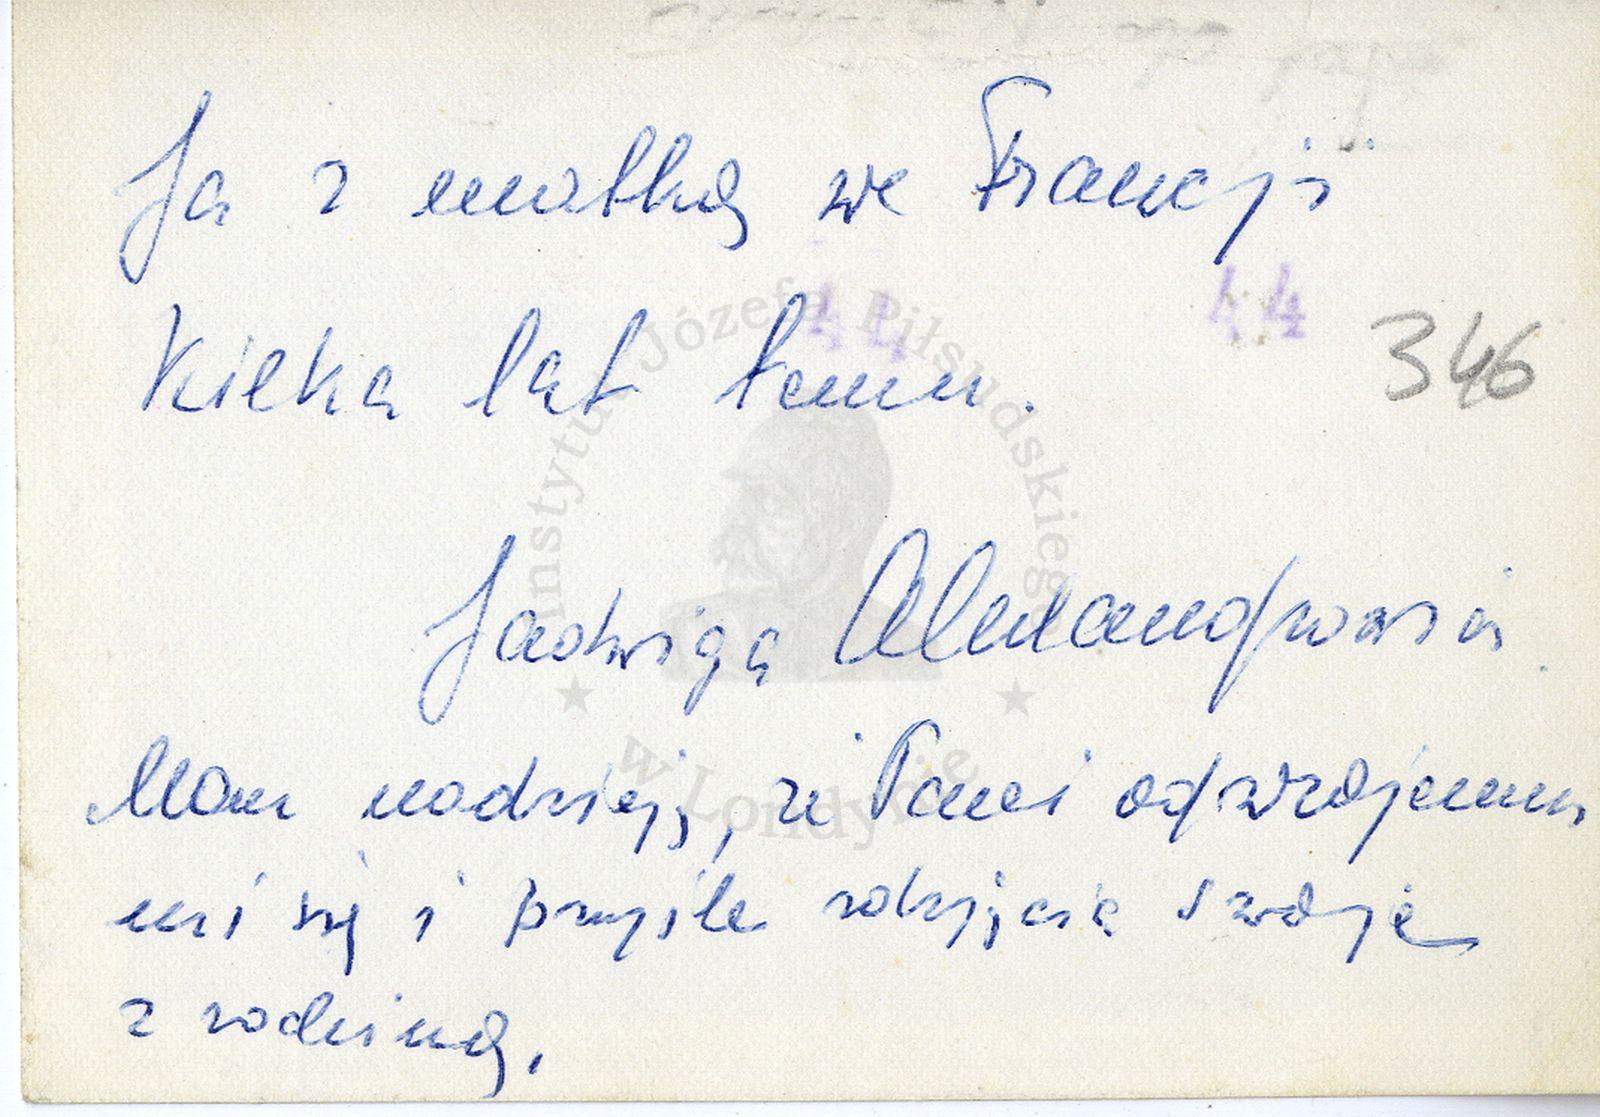 Ja z matką we Francji
44 44
Kilka lat temu.
346
Instytut Józefa Piłsudskiego
w Londynie
Jadwiga
Mam nadzieję, że Pani odwzajemni
mi się i przyśle zdjęcie swoje
z rodziną.